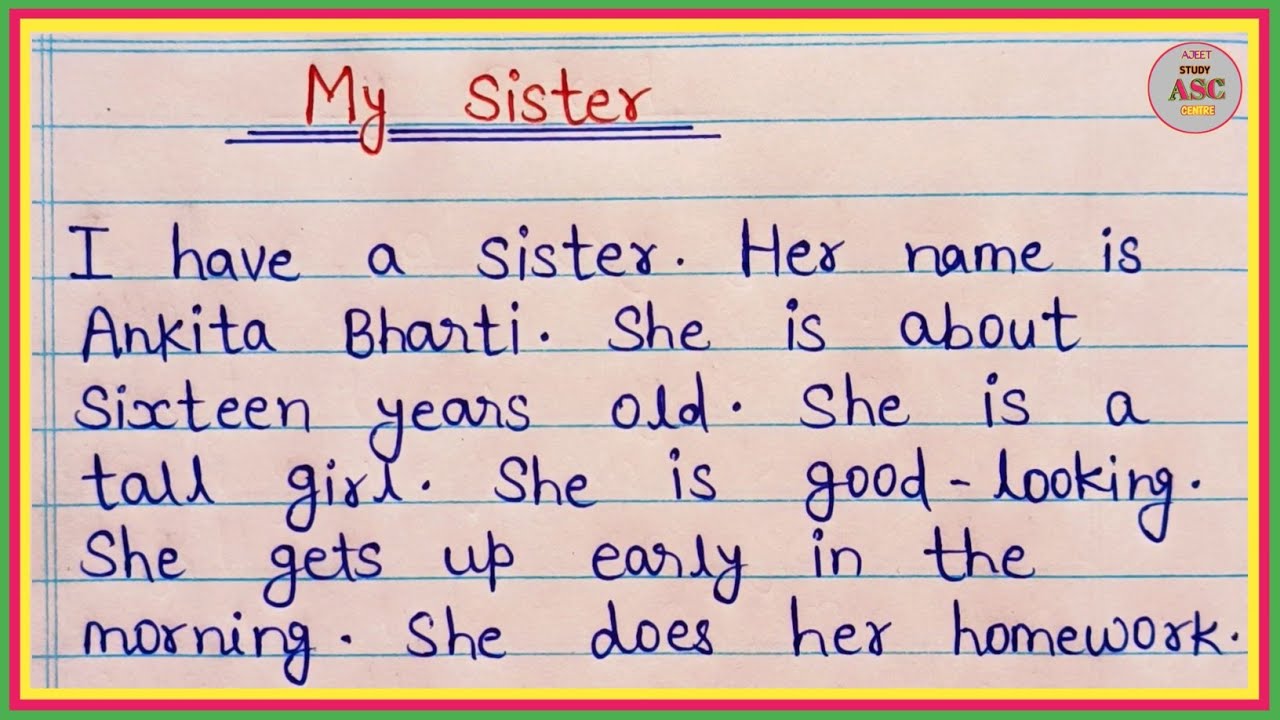 My Sister
AJEET
STUDY
ASC
CENTRE
I have a sister. Her name is
Ankita Bharti. She is about
Sixteen years old. She is a
tall girl. She is good-looking.
She gets up early in the
morning. She does her homework.